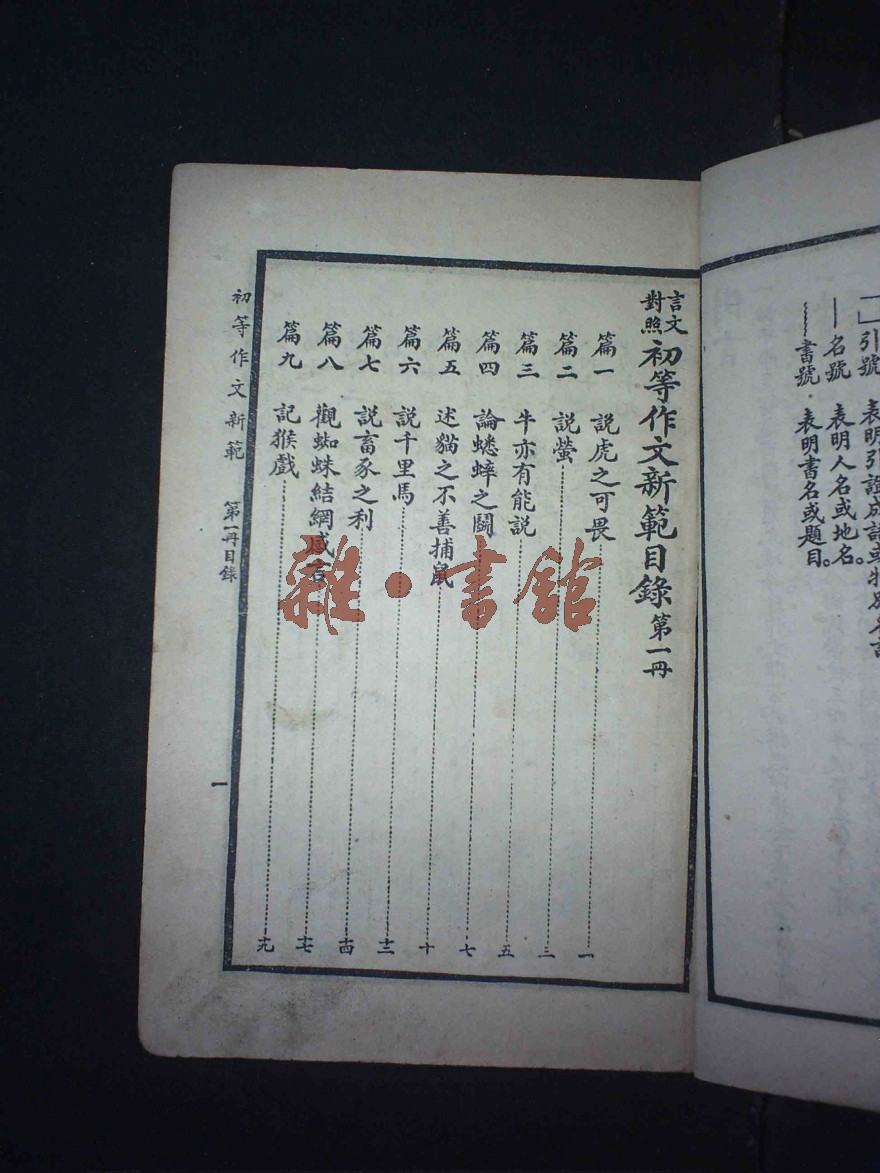 「」引號 表明引證成語或特別名詞
— 名號 表明人名或地名。
﹏﹏書號 表明書名或題目。
言文對照初等作文新範目錄 第一冊
篇一 說虎之可畏 一
篇二 說螢 三
篇三 牛亦有能說 五
篇四 論蟋蟀之鬭 七
篇五 述貓之不善捕鼠 十
篇六 說千里馬 十二
篇七 說畜豕之利 十四
篇八 觀蜘蛛結網感言 十七
篇九 記猴戲 十九
初等作文新範 第一冊目錄 一
雜·書館